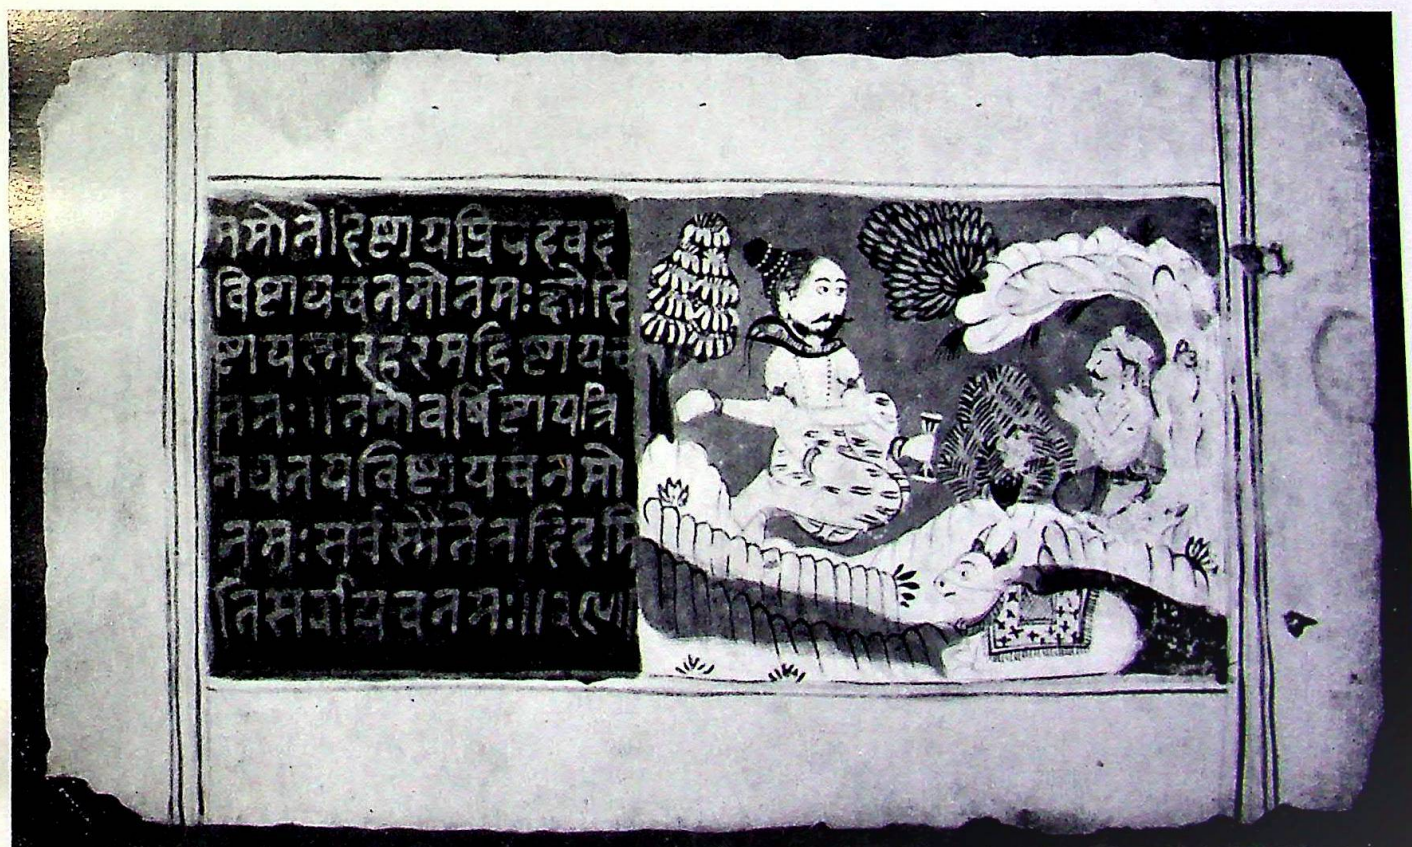 नमोनेदिष्टायप्रियदवद
विष्टायचनमोनमःक्षोदि
ष्टायस्मरहरमहिष्टायच
नमः॥नमोवर्षिष्टायत्रि
नयनयविष्टायचनमो
नमःसर्वस्मैतेतदिदमि
तिसर्वायचनमः॥२९॥